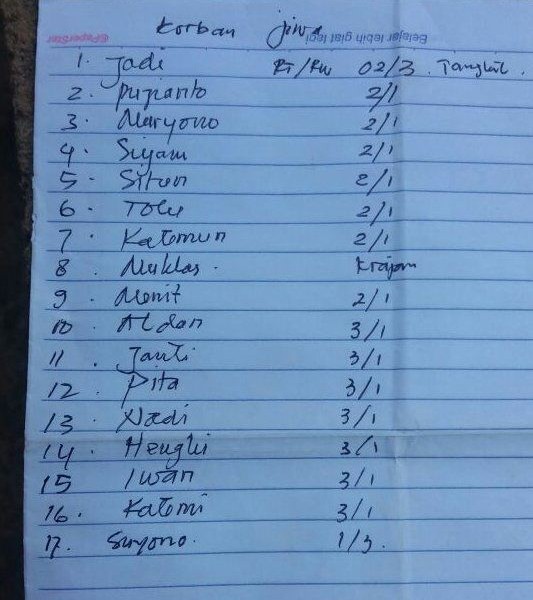 Korban jiwa
@PaperStar
Belajar lebih giat lagi
1. Jadi RT/RW 02/3 Tangkil.
2. Pujianto 2/1
3. Maryono 2/1
4. Siyam 2/1
5. Situn 2/1
6. Tolu 2/1
7. Katemun 2/1
8. Muklas. Krajan
9. Menit 2/1
10 Aldan 3/1
11. Janti 3/1
12. Pita 3/1
13. Nadi 3/1
14. Hengki 3/1
15 Iwan 3/1
16. Katemi 3/1
17. Suyono. 1/3.